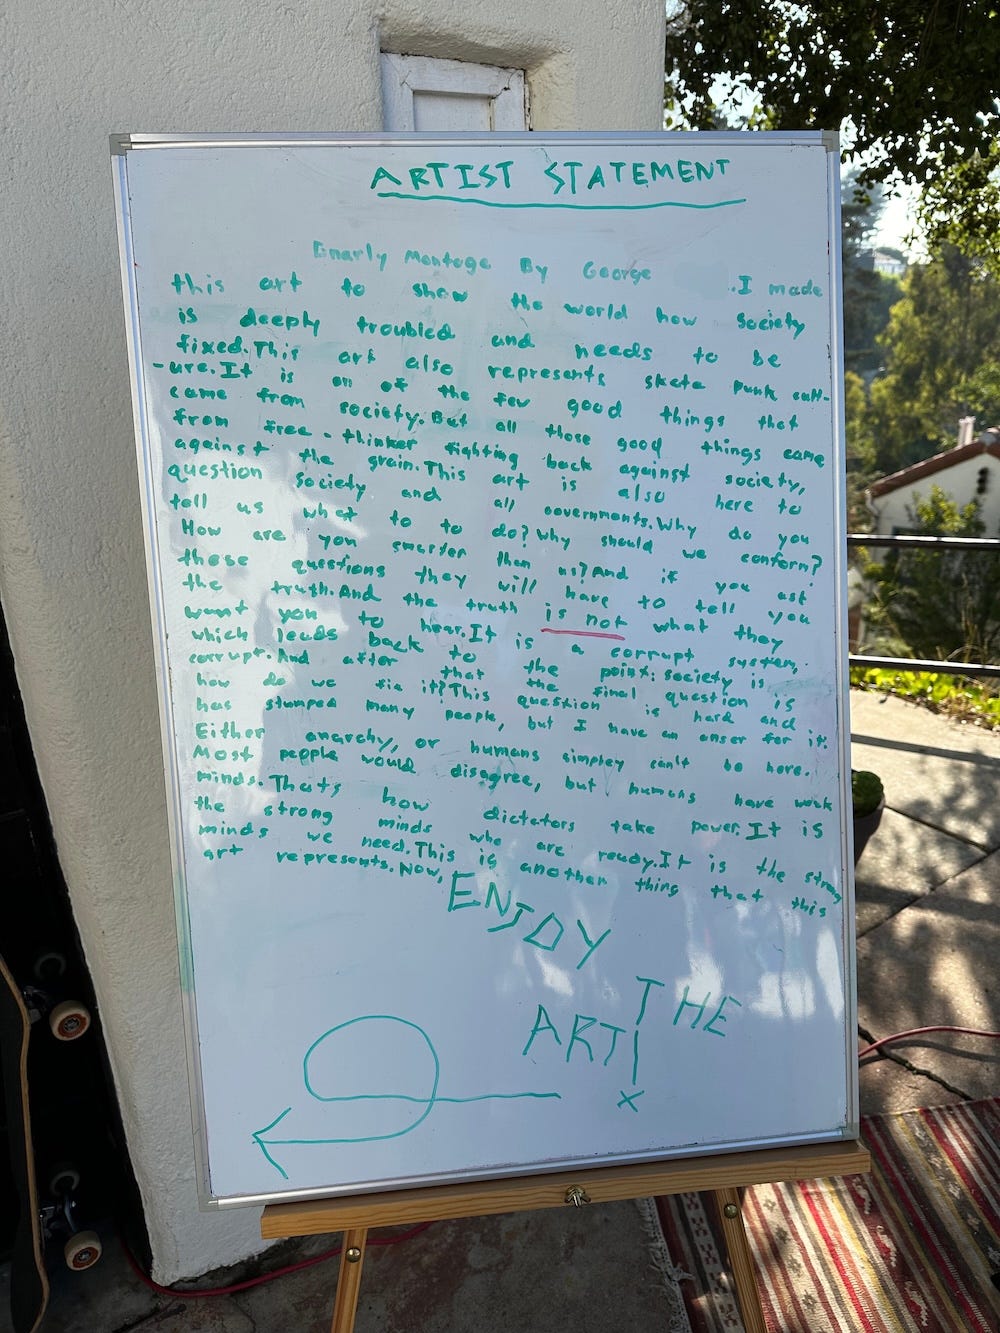 ARTIST STATEMENT
Gnarly Montage By George . I made
this art to show the world how society
is deeply troubled and needs to be
fixed. This art also represents skate punk cult-
-ure. It is on of the few good things that
came from society. But all those good things came
from free-thinker fighting back against society,
against the grain. This art is also here to
question society and all governments. Why do you
tell us what to to do? Why should we conform?
How are you smarter then us? And if you ask
these questions they will have to tell you
the truth. And the truth is not what they
want you to hear. It is a corrupt system,
which leads back to the point: society is
corrupt. And after that the final question is
how do we fix it? This question is hard and
has stumped many people, but I have an anser for it.
Either anarchy, or humans simpley can't be here.
Most people would disagree, but humans have weak
minds. Thats how dictators take power. It is
the strong minds who are ready. It is the strong
minds we need. This is another thing that this
art represents. Now, ENJOY
THE
ART!